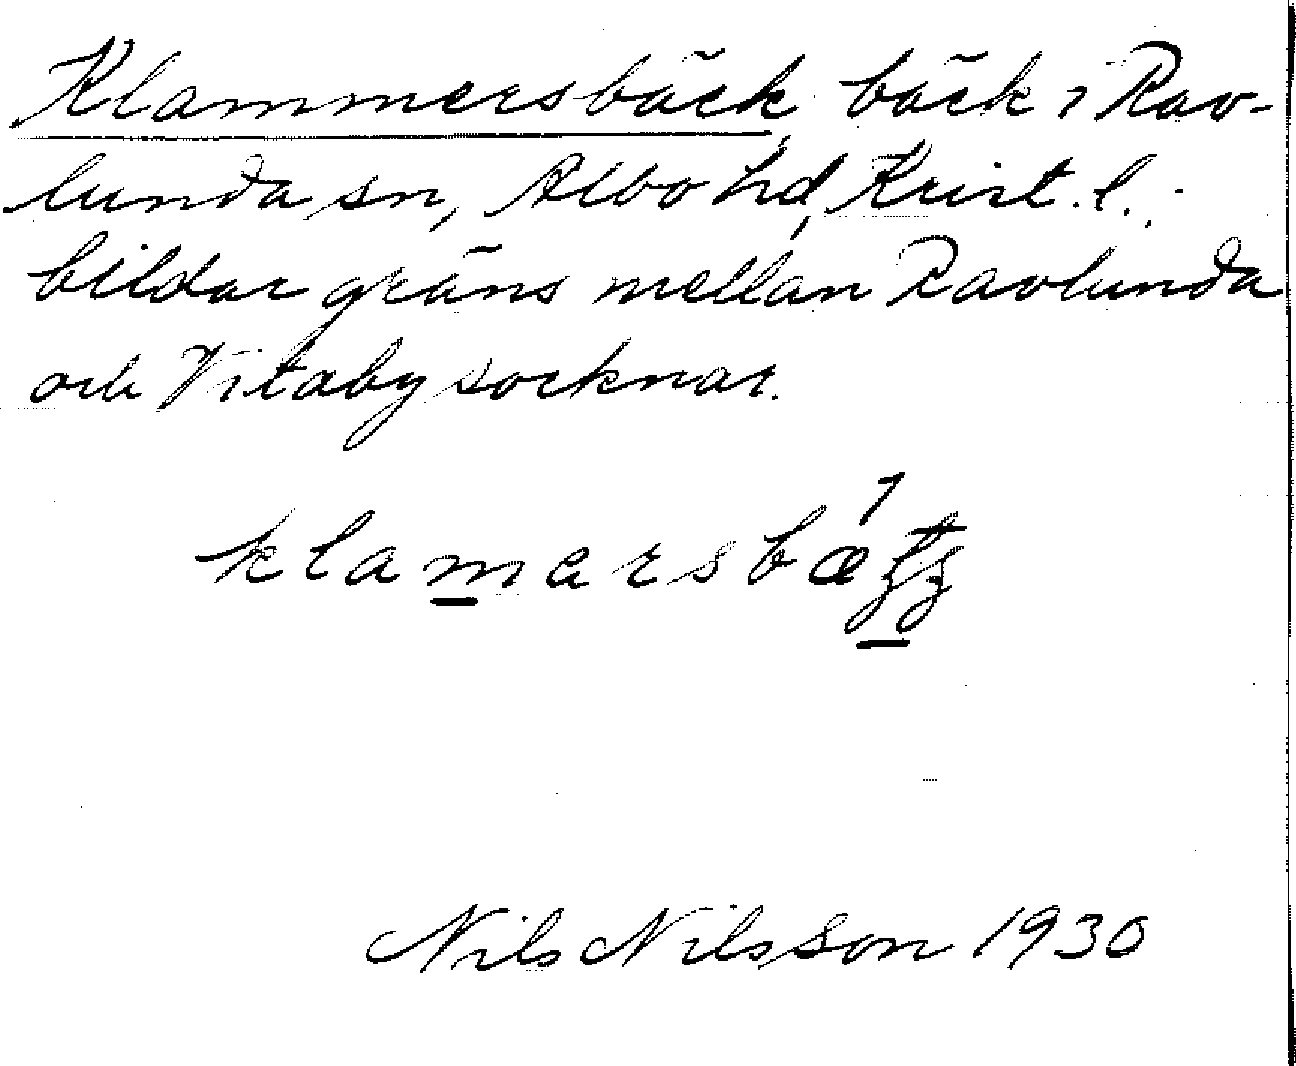 Klammersbäck, bäck i Rav-
lunda sn, Albo hd, Krist. l.;
bildar gräns mellan Ravlunda
och Vitaby socknar.
klamarsbæ
Nils Nilsson 1930